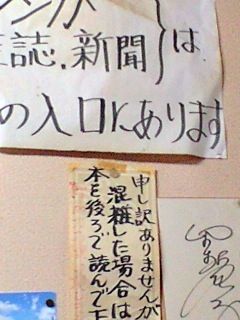 マンガ
誌.新聞
は
の入口にあります
申し訳ありませんが
混雑した場合は
本を後ろで読んで下